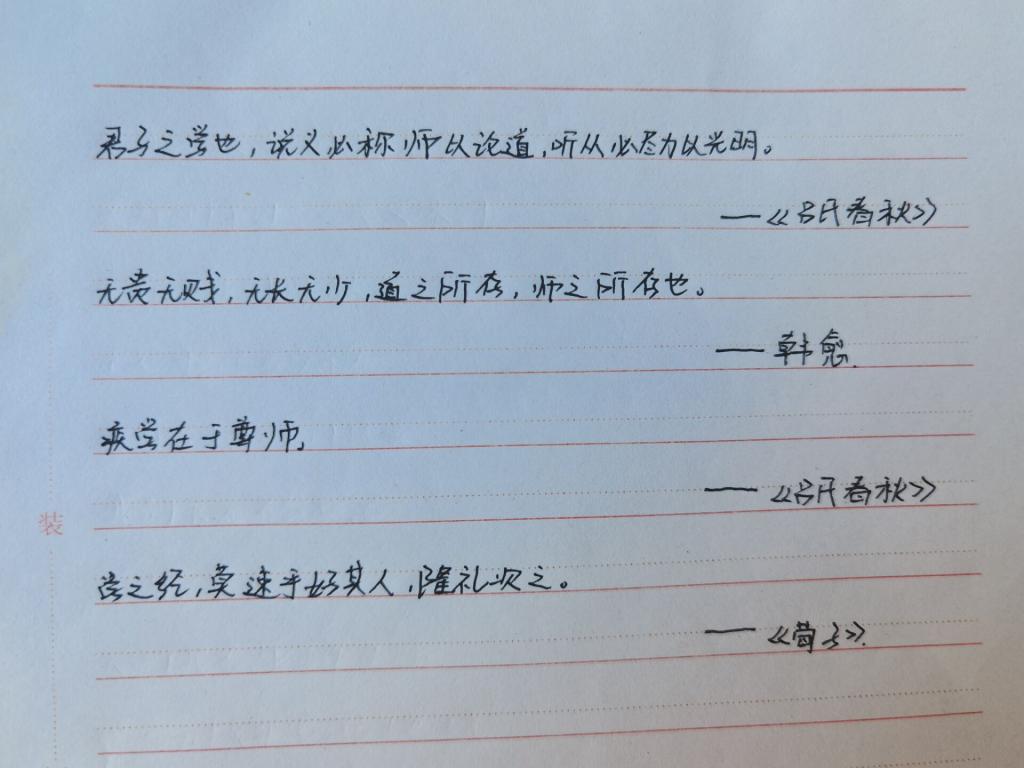 君子之学也,说义必称师以论道,听从必尽力以光明。
——《吕氏春秋》
无贵无贱,无长无少,道之所存,师之所存也。
——韩愈.
疾学在于尊师,
——《吕氏春秋》
装
学之经,莫速乎好其人,隆礼次之。
——《荀子》.